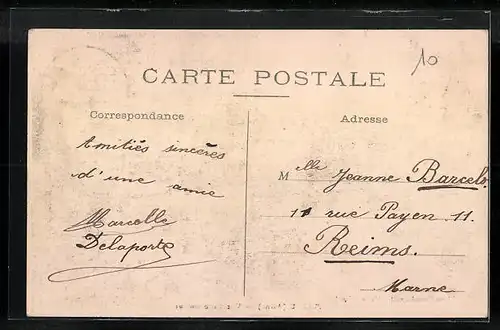 10
CARTE POSTALE
Correspondance
Adresse
Amitiés sincères
d'une amie
Marcelle
Delaporte
Melle Jeanne Barcelo.
11 rue Payen 11.
Reims.
Marne